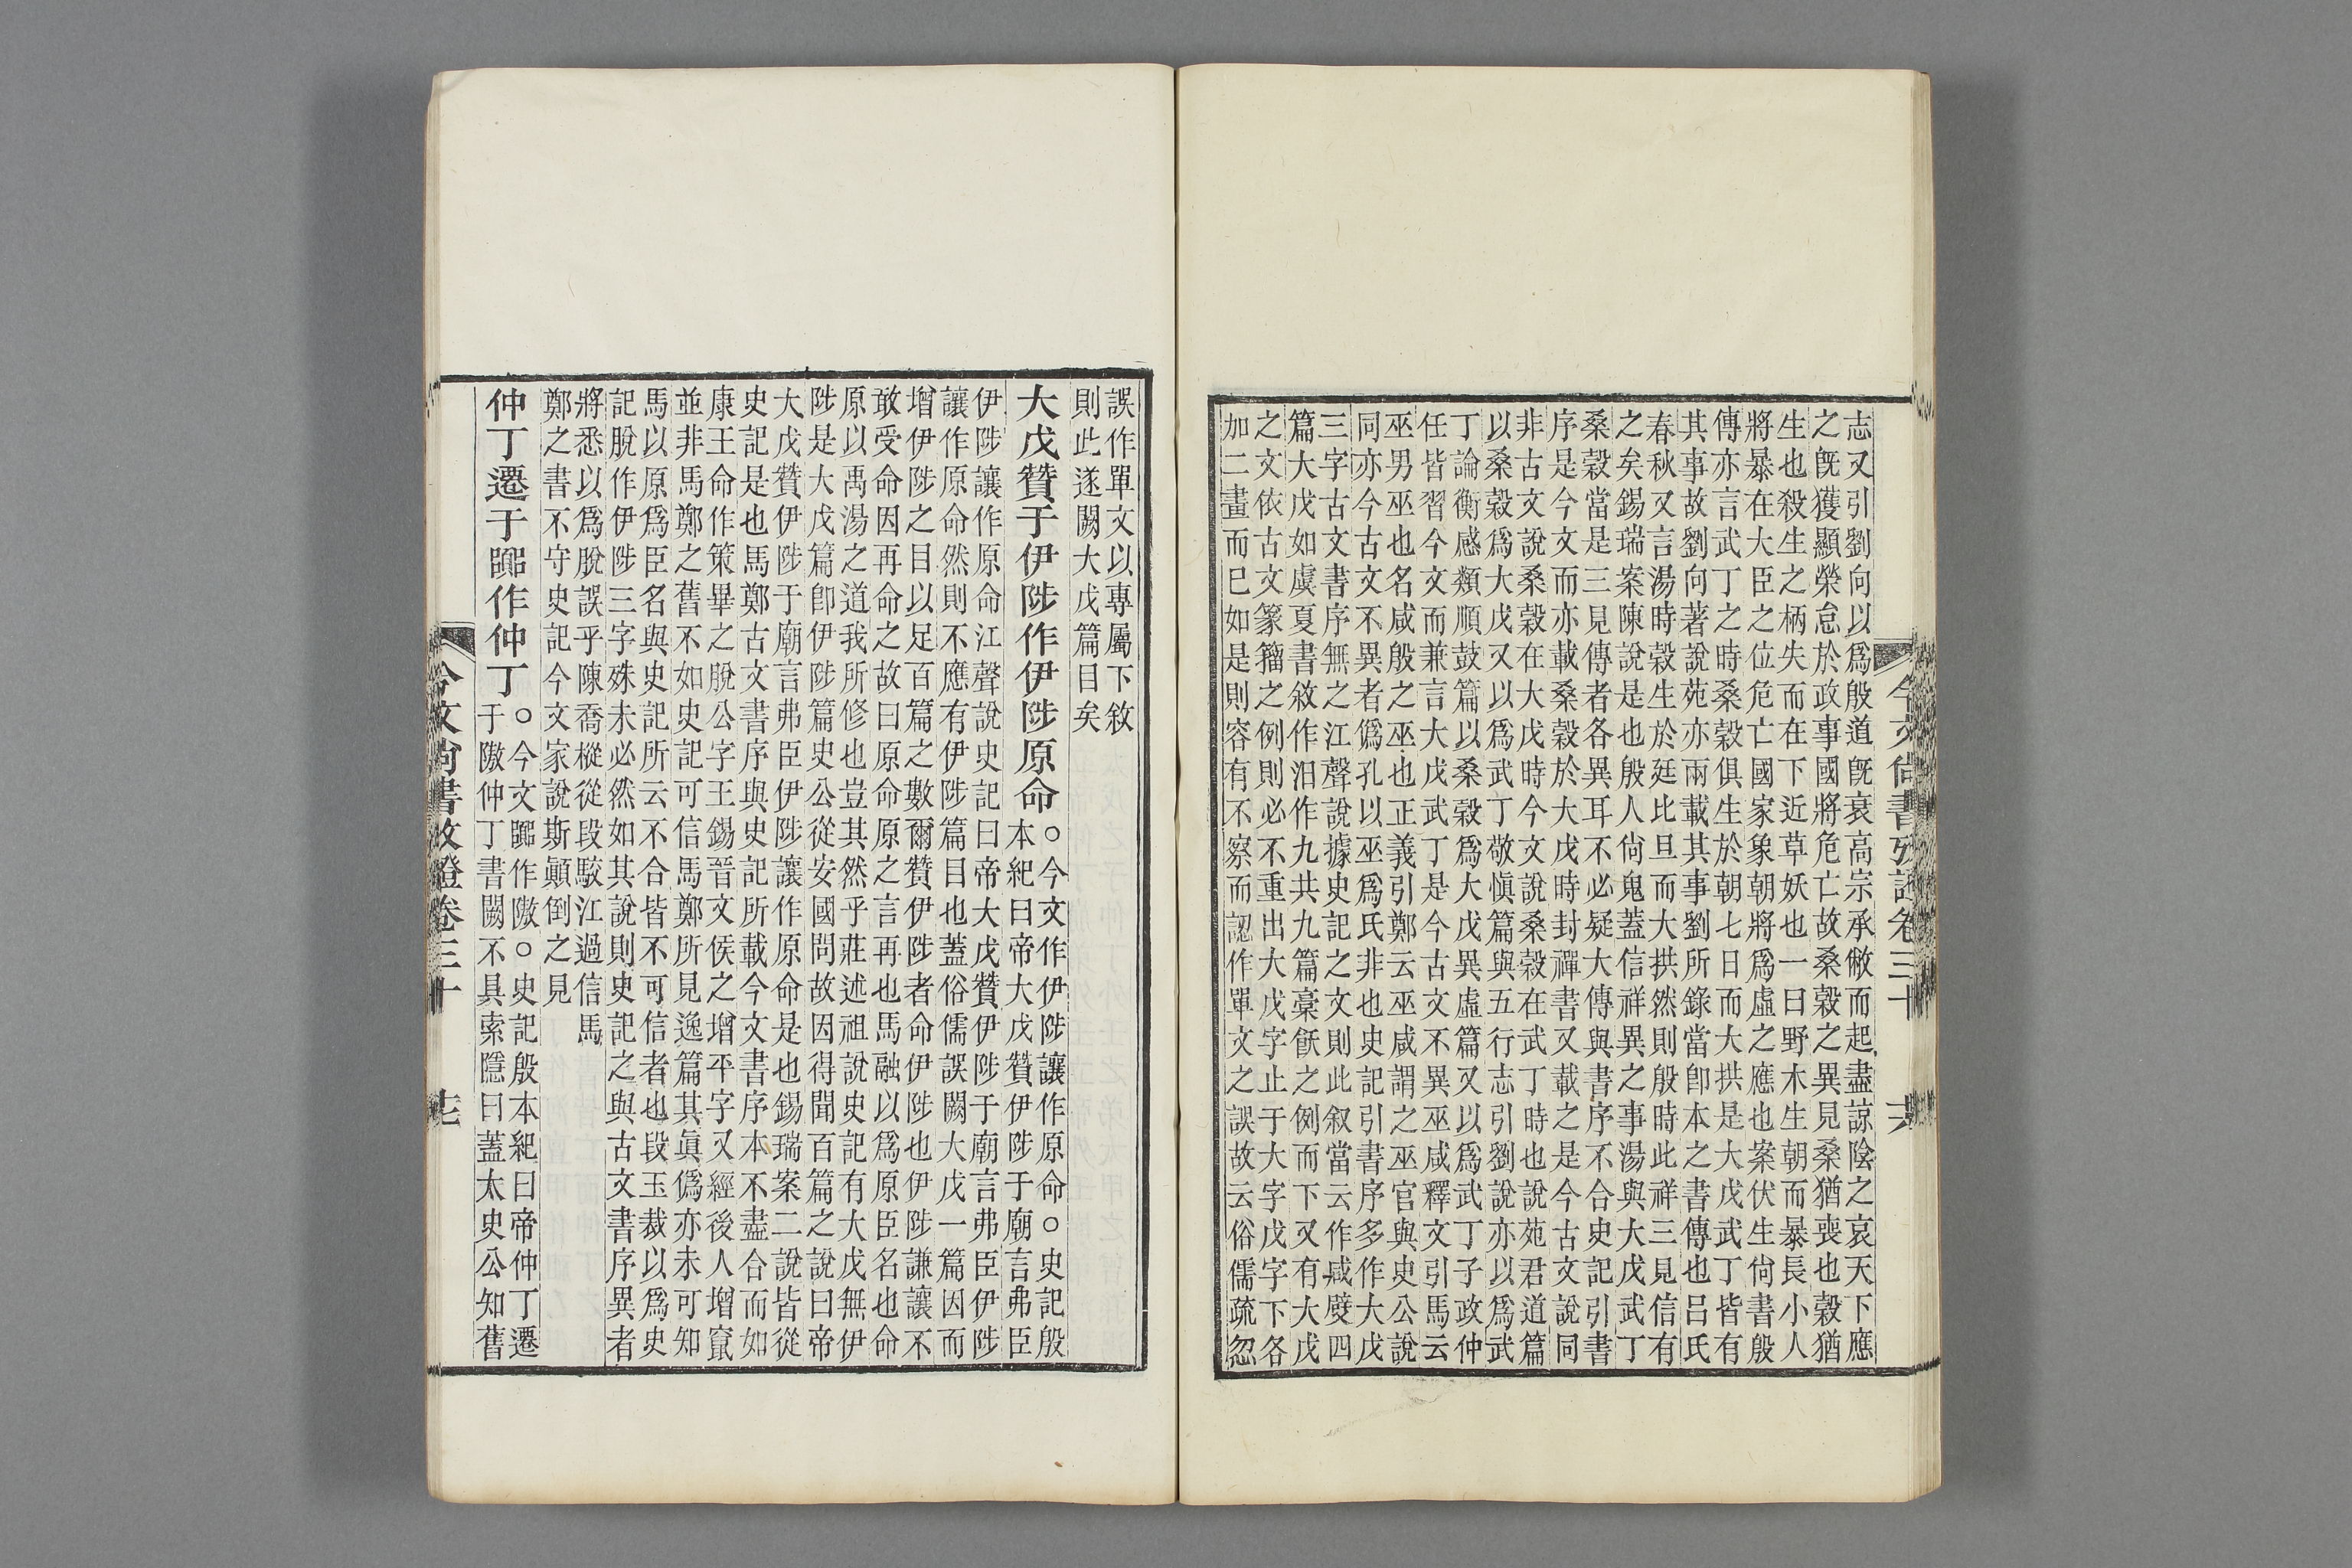 志又引劉向以爲殷道旣衰高宗承敝而起盡諒陰之哀天下應
之旣獲顯榮怠於政事國將危亡故桑穀之異見桑猶喪也穀猶
生也殺生之柄失而在下近草妖也一曰野木生朝而暴長小人
將暴在大臣之位危亡國家象朝將爲虛之應也案伏生尙書殷
傳亦言武丁之時桑穀俱生於朝七日而大拱是大戊武丁皆有
其事故劉向著說苑亦兩載其事劉所錄當卽本之書傳也呂氏
春秋又言湯時穀生於廷比旦而大拱然則殷時此祥三見信有
之矣錫瑞案陳說是也殷人尙鬼蓋信祥異之事湯與大戊武丁
桑穀當是三見傳者各異耳不必疑大傳與書序不合史記引書
序是今文而亦載桑穀於大戊時封禪書又載之是今古文說同
非古文說桑穀在大戊時今文說桑穀在武丁時也說苑君道篇
以桑穀爲大戊又以爲武丁敬愼篇與五行志引劉說亦以爲武
丁論衡感類順鼓篇以桑穀爲大戊異虛篇又以爲武丁子政仲
任皆習今文而兼言大戊武丁是今古文不異巫咸釋文引馬云
巫男巫也名咸殷之巫也正義引鄭云巫咸謂之巫官與史公說
同亦今古文不異者僞孔以巫爲氏非也史記引書序多作大戊
三字古文書序無之江聲說據史記之文則此叙當云作咸㜸四
篇大戊如虞夏書敘作汨作九共九篇稾飫之例而下又有大戊
之文依古文篆籀之例則必不重出大戊字止于大字戊字下各
加二畫而已如是則容有不察而認作單文之誤故云俗儒疏忽
今文尙書攷證卷三十 六
誤作單文以專屬下敘
則此遂闕大戊篇目矣
大戊贊于伊陟作伊陟原命○今文作伊陟讓作原命○史記殷
本紀曰帝大戊贊伊陟于廟言弗臣
伊陟讓作原命江聲說史記曰帝大戊贊伊陟于廟言弗臣伊陟
讓作原命然則不應有伊陟篇目也蓋俗儒誤闕大戊一篇因而
增伊陟之目以足百篇之數爾贊伊陟者命伊陟也伊陟謙讓不
敢受命因再命之故曰原命原之言再也馬融以爲原臣名也命
原以禹湯之道我所修也豈其然乎莊述祖說史記有大戊無伊
陟是大戊篇卽伊陟篇史公從安國問故因得聞百篇之說曰帝
大戊贊伊陟于廟言弗臣伊陟讓作原命是也錫瑞案二說皆從
史記是也馬鄭古文書序與史記所載今文書序本不盡合而如
康王命作策畢之脫公字王錫晉文侯之增平字又經後人增竄
並非馬鄭之舊不如史記可信馬鄭所見逸篇其眞僞亦未可知
馬以原爲臣名與史記所云不合皆不可信者也段玉裁以爲史
記脫作伊陟三字殊未必然如其說則史記之與古文書序異者
將悉以爲脫誤乎陳喬樅從段駮江過信馬
鄭之書不守史記今文家說斯顚倒之見
仲丁遷于囂作仲丁○今文囂作隞○史記殷本紀曰帝仲丁遷
于隞仲丁書闕不具索隱曰蓋太史公知舊
今文尙書攷證卷三十